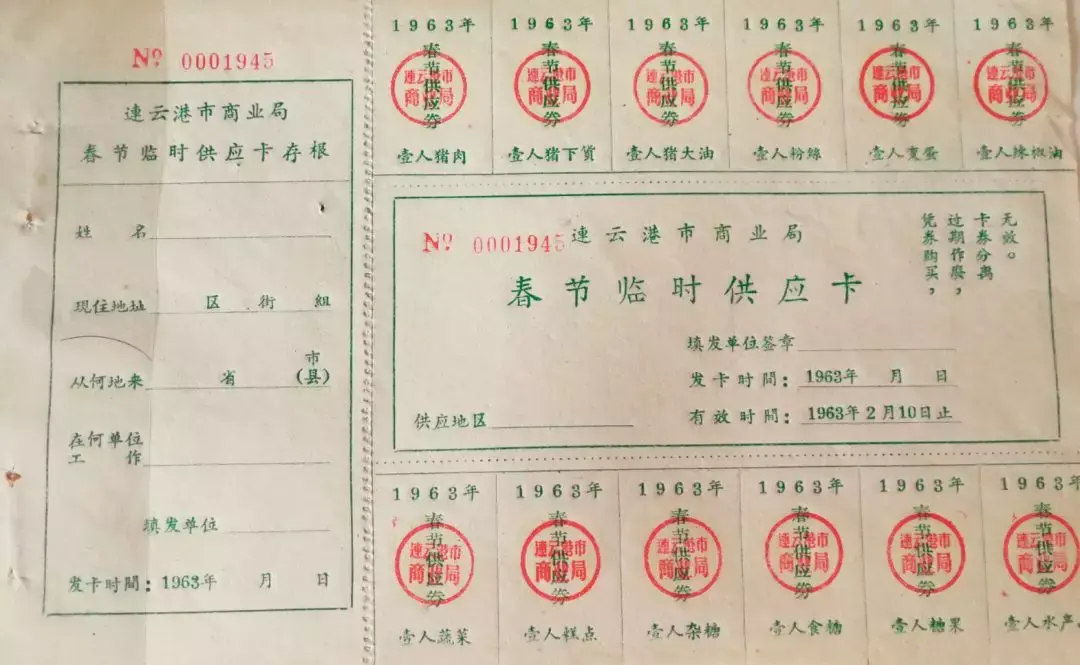 № 0001945
連云港市商业局
春节临时供应卡存根
姓 名
現住地址 区 街 組
从何地来 省 市(县)
在何单位工作
填发单位
发卡时間：1963年 月 日
1963年
春节供应券
連云港市
商业局
壹人猪肉
1963年
春节供应券
連云港市
商业局
壹人猪下貨
1963年
春节供应券
連云港市
商业局
壹人猪大油
1963年
春节供应券
連云港市
商业局
壹人粉絲
1963年
春节供应券
連云港市
商业局
壹人变蛋
1963年
春节供应券
連云港市
商业局
壹人辣椒油
№ 0001945
連云港市商业局
春节临时供应卡
凭券购买，
过期作废，
卡券分离
无效。
填发单位签章
发卡时間：1963年 月 日
有效时間：1963年2月10日止
供应地区
1963年
春节供应券
連云港市
商业局
壹人蔬菜
1963年
春节供应券
連云港市
商业局
壹人糕点
1963年
春节供应券
連云港市
商业局
壹人杂糖
1963年
春节供应券
連云港市
商业局
壹人食糖
1963年
春节供应券
連云港市
商业局
壹人糖果
1963年
春节供应券
連云港市
商业局
壹人水产